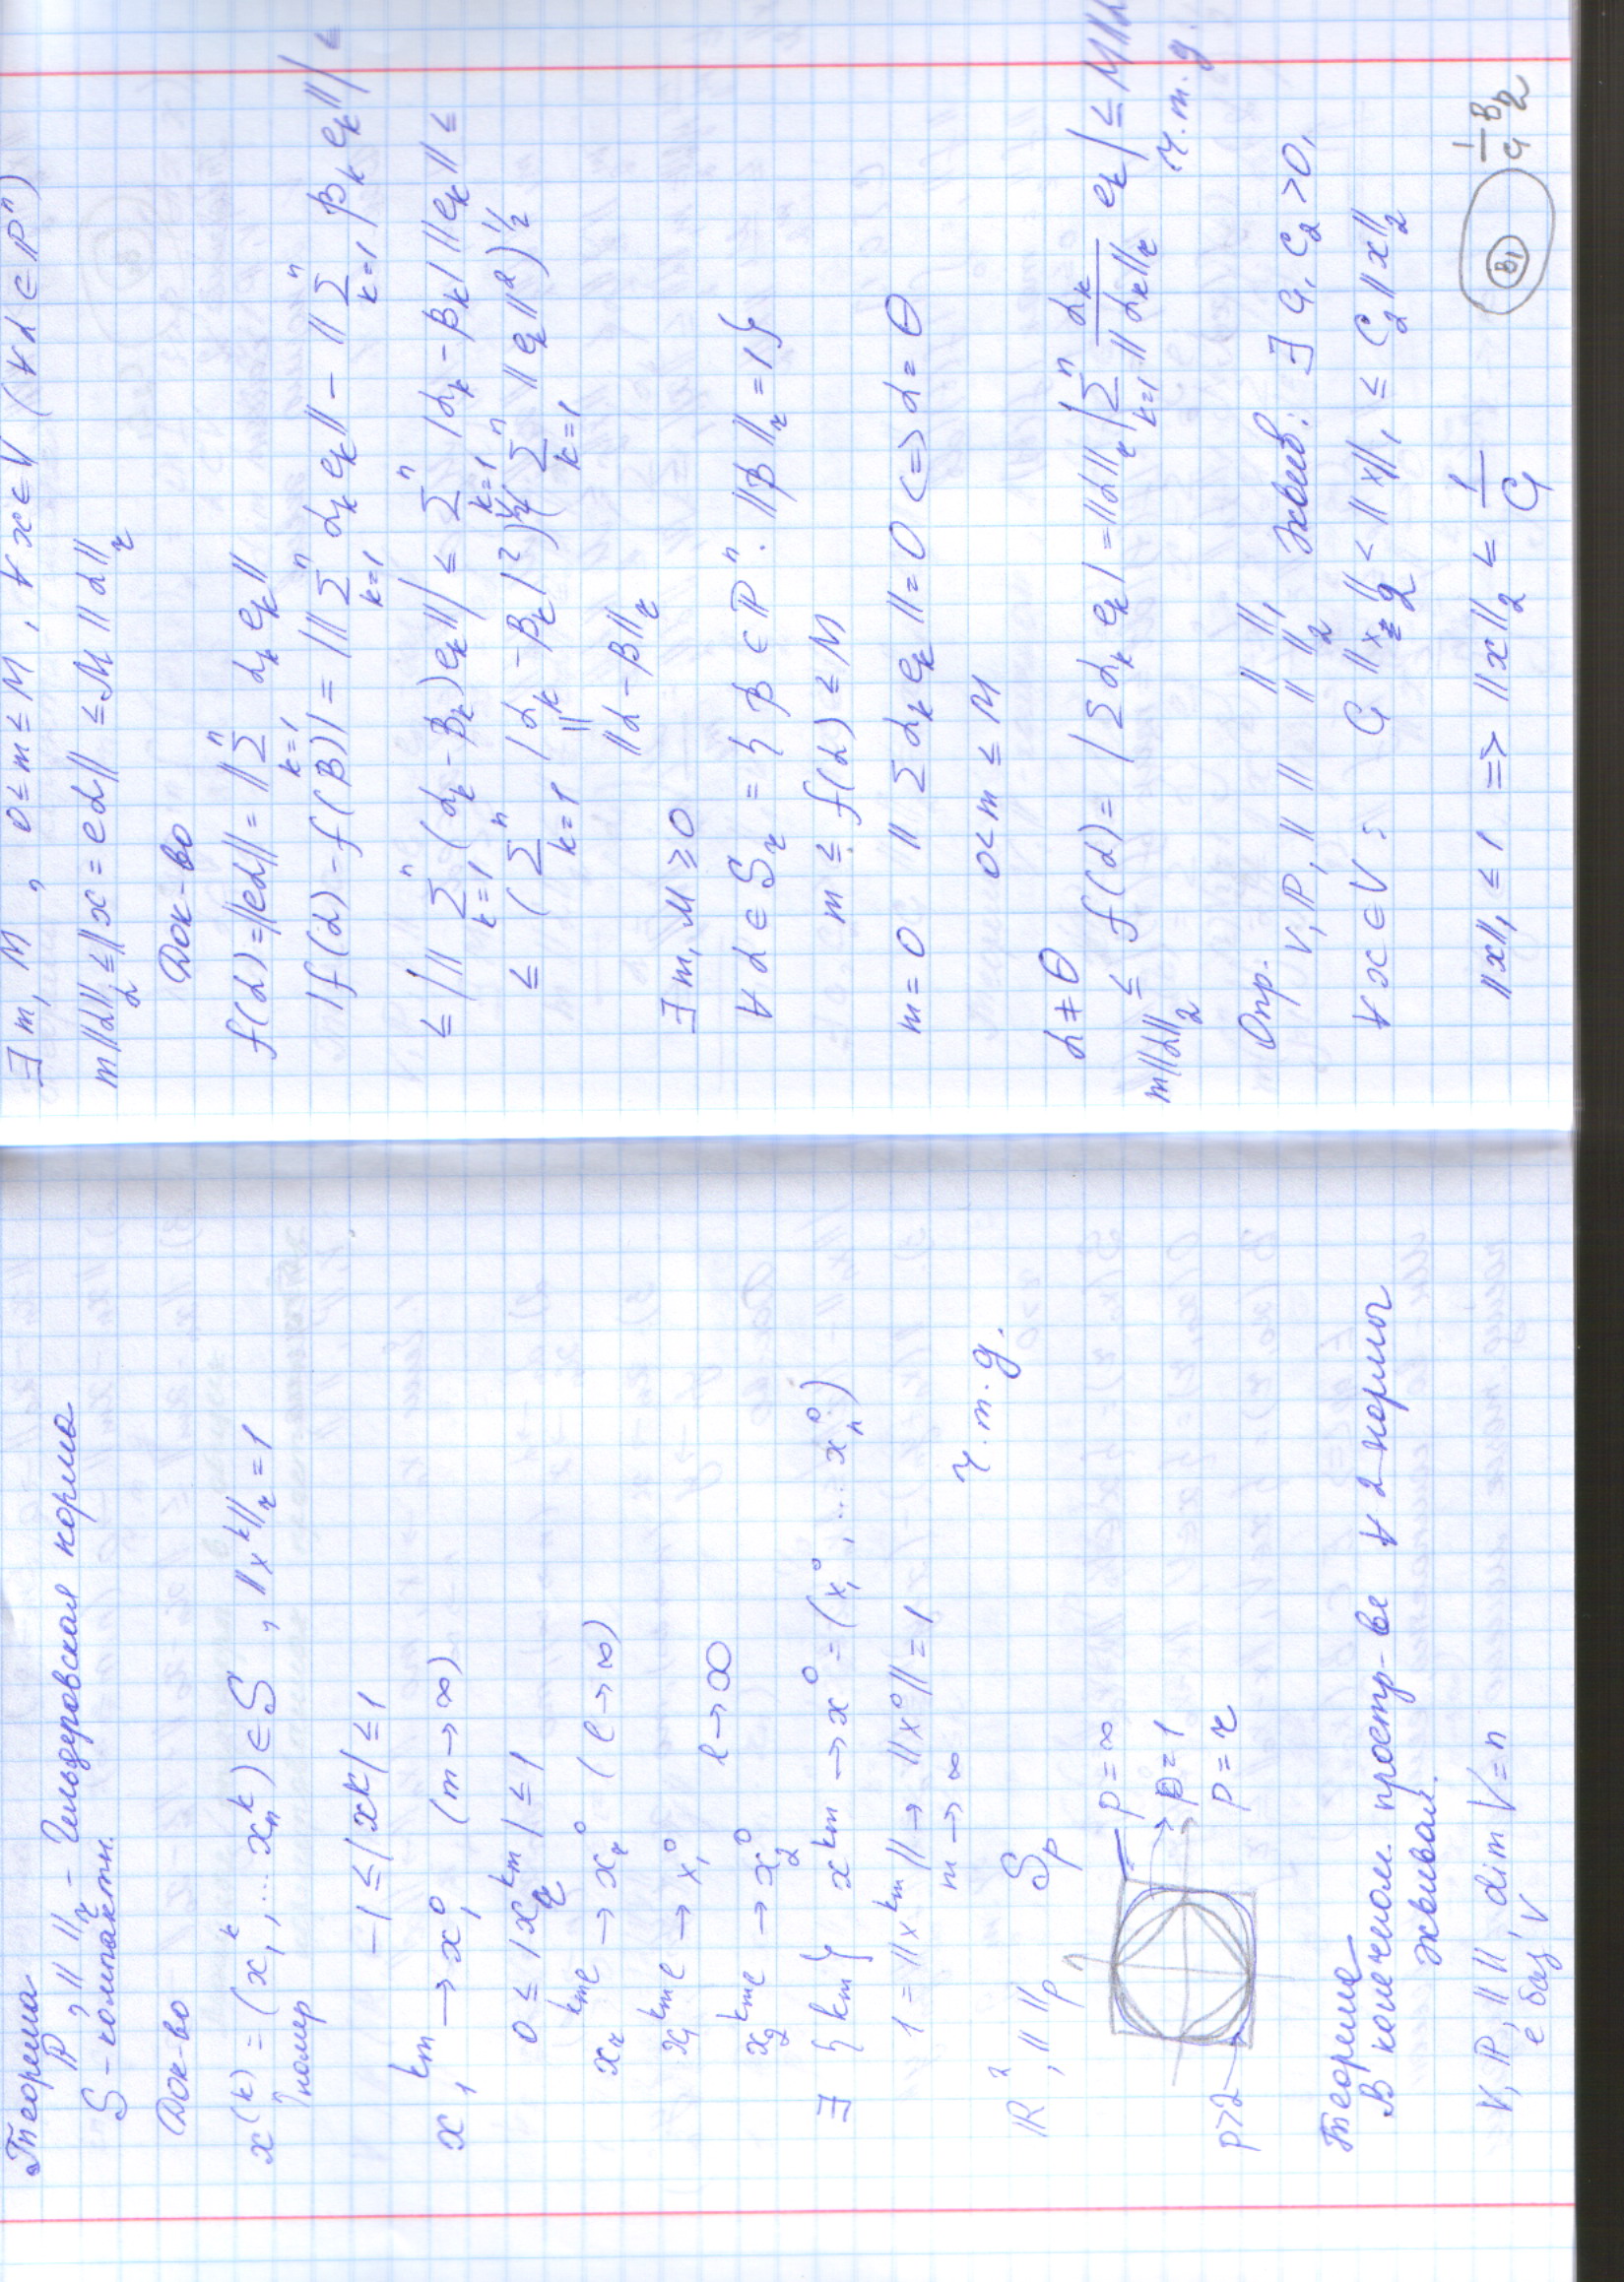 Теорема
ℙⁿ, ‖ ‖₂ - Гельдеровская норма
S - компактн.
Док-во
x^(k) = (x₁^k, ... xₙ^k) ∈ S, ‖x^k‖₂ = 1
↑номер
-1 ≤ |x^k| ≤ 1
x₁^{k_m} → x₁⁰ (m → ∞)
0 ≤ |x₂^{k_m}| ≤ 1
x₂^{k_{m_l}} → x₂⁰ (l → ∞)
x₁^{k_{m_l}} → x₁⁰
x₂^{k_{m_l}} → x₂⁰ l → ∞
∃ {k_m} x^{k_m} → x⁰ = (x₁⁰, ... xₙ⁰)
1 = ‖x^{k_m}‖ → ‖x⁰‖ = 1
m → ∞
ч.т.д.
ℝ², ‖ ‖_p S_p
p = ∞
p = 1
p = 2
p>2
Теорема
В конечном. простр-ве ∀ 2 нормы
эквивал.
V, ℙ, ‖ ‖, dim V = n
e баз. V
∃ m, M, 0 ≤ m ≤ M, ∀ x ∈ V (∀ α ∈ ℙⁿ)
m‖α‖₂ ≤ ‖x = eα‖ ≤ M ‖α‖₂
Док-во
f(α) = ‖eα‖ = ‖∑_{k=1}^n α_k e_k‖
|f(α) - f(β)| = |‖∑_{k=1}^n α_k e_k‖ - ‖∑_{k=1}^n β_k e_k‖| ≤
≤ |‖∑_{k=1}^n (α_k - β_k) e_k‖| ≤ ∑_{k=1}^n |α_k - β_k| ‖e_k‖ ≤
≤ (∑_{k=1}^n |α_k - β_k|²)^{1/2} (∑_{k=1}^n ‖e_k‖²)^{1/2}
‖α - β‖₂
∃ m, M ≥ 0
∀ α ∈ S₂ = {β ∈ ℙⁿ: ‖β‖₂ = 1}
m ≤ f(α) ≤ M
m = 0 ‖∑ α_k e_k‖ = 0 <=> α = θ
0 < m ≤ M
α ≠ θ
m‖α‖₂ ≤ f(α) = |∑ α_k e_k| = ‖α‖₂ |∑_{k=1}^n α_k/‖α_k‖₂ e_k| ≤ M‖α
ч.т.д.
Опр. V, ℙ, ‖ ‖ ‖ ‖₁
‖ ‖₂ эквив.: ∃ C₁, C₂ > 0,
∀ x ∈ V: C₁ ‖x‖₂ ≤ ‖x‖₁ ≤ C₂ ‖x‖₂
‖x‖₁ ≤ 1 => ‖x‖₂ ≤ 1/C₁
B₁ 1/C₁ B₂